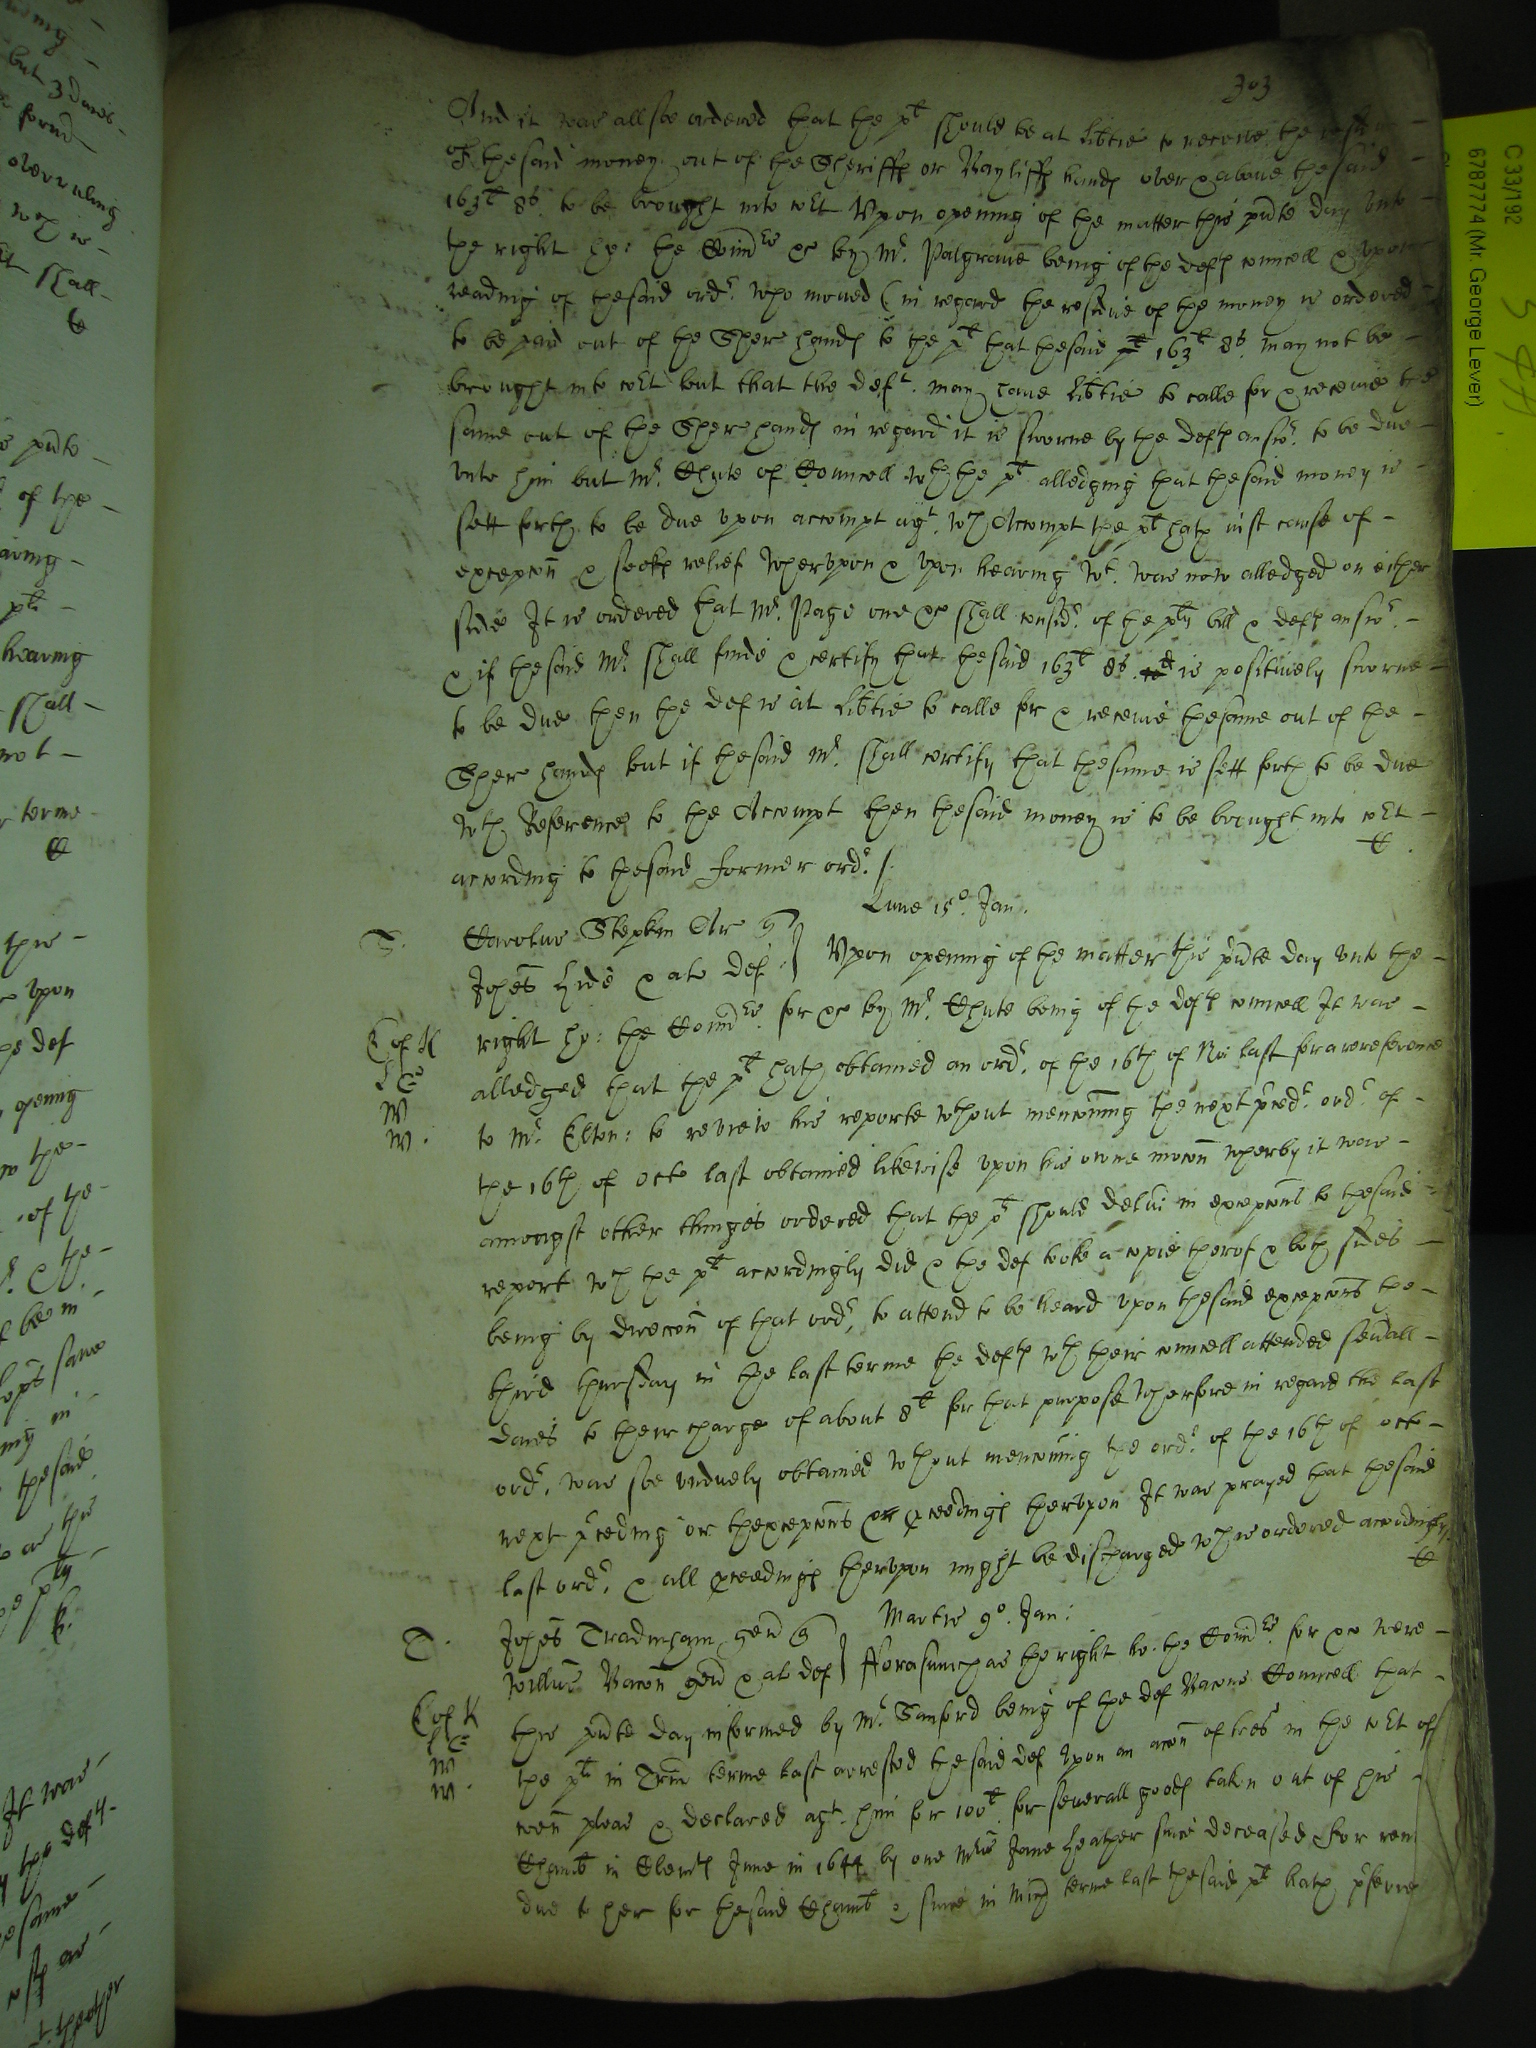 303
And it was allsoe ordered that the plt should be at lib̃tie to receive the residue
of the said money out of the Sheriffs or Bayliffs hands over & above the said
163l 8s. to be brought into cot Upon opening of the matter this p̃nte day unto
the right ho: the Com̃rs &c by Mr. Palgrave being of the defts councell & upon
reading of the said ordr. who moved (in regard the residue of the money is ordered
to be paid out of the Sher hands to the plt that the said 163l 8s. may not be
brought into cot but that the deft. may have lib̃tie to calle for & receive the
same out of the Sher hands in regard it is sworne by the defts answr. to be due
unto him but Mr. Chute of Councell wth the plt alledging that the said money is
sett forth to be due upon accompt agt. wch Accompt the plt hath just cause of
excepcõn & seeks relief wherupon & upon hearing wt. was now alledged on either
side It is ordered that Mr. Page one &c shall considr. of the plts bill & defts answr.
& if the said Mr. shall finde & certify that the said 163l 8s. is positively sworne
to be due then the def is at lib̃tie to calle for & receive the same out of the
Sher hands but if the said Mr. shall certify that the same is sett forth to be due
wth Reference to the Accompt then the said money is to be brought into cot
according to the said former ordr. /.
Lune 15o. Jan.
Carolus Stepkin Ar q
Joh̃es Hide & alo def } Upon opening of the matter this p̃nte day unto the
right ho: the Com̃rs. for &c by Mr. Chute being of the defts councell It was
alledged that the plt hath obtained an ordr. of the 16th of No: last for a rereference
to Mr. Elton: to review his reporte wthout mencõning the next p̃cedt. ordr. of
the 16th of Octo last obtained likewise upon his owne mocõn wherby it was
amongst other thinges ordered that the plt should deliṽ in excepcõns to the said
report wch the plt accordingly did & the def tooke a copie therof & both sides
being by direccõn of that ordr. to attend to be heard upon the said excepcõns the
third thursday in the last terme the defts wth their councell attended seṽall
daies to their charge of about 8l for that purpose wherfore in regard the last
ordr. was soe unduely obtained wthout mencõning the ordr. of the 16th of Octo
next p̃ceding or the excepcõns or p̃ceedings therupon It was prayed that the said
last ordr. & all p̃ceedings therupon might be discharged wch is ordered accordingly.
Martis 9o. Jan:
Joh̃es Tradinham gen̄ q
Willũs Bacon gen̄ & al def } Forasmuch as the right ho. the Com̃rs. for &c were
this p̃nte day informed by Mr. Sanford being of the def Bacons Councell that
the plt in Trin̄ terme last arrested the said def upon an accõn of tres in the cot of
com̃ pleas & declared agt. him for 100l. for severall goods taken out of his
Chamb̃ in Clemts Inne in 1644 by one Mris Jane Heather since deceased for rent
due to her for the said Chamb̃ & since in Mich terme last the said plt hath p̃ferred
C 33/192
6787774 (Mr. George Lever)